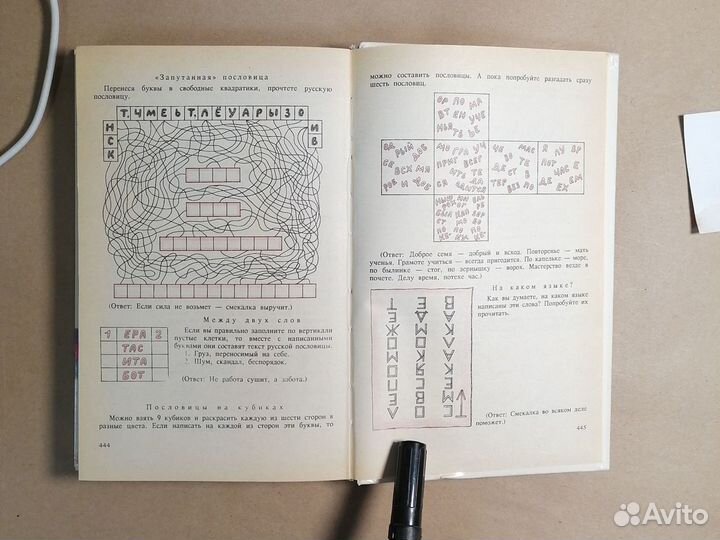 «Запутанная» пословица
Перенеся буквы в свободные квадратики, прочтете русскую
пословицу.
Т.ЧМЕЬТ.ЛЁУАРЫЗО
Н И
С В
К
(Ответ: Если сила не возьмет — смекалка выручит.)
Между двух слов
1 ЕРА 2
ТАС
ИТА
БОТ
Если вы правильно заполните по вертикали
пустые клетки, то вместе с написанными
буквами они составят текст русской пословицы.
1. Груз, переносимый на себе.
2. Шум, скандал, беспорядок.
(Ответ: Не работа сушит, а забота.)
Пословицы на кубиках
Можно взять 9 кубиков и раскрасить каждую из шести сторон в
разные цвета. Если написать на каждой из сторон эти буквы, то
444
можно составить пословицы. А пока попробуйте разгадать сразу
шесть пословиц.
ОР ПО МА
ВТ ЕН УЧЕ
НЬЯ ТЬ ЬЕ
(Ответ: Доброе семя — добрый и всход. Повторенье — мать
ученья. Грамоте учиться — всегда пригодится. По капельке — море,
по былинке — стог, по зернышку — ворох. Мастерство везде в
почете. Делу время, потехе час.)
На каком языке?
Как вы думаете, на каком языке
написаны эти слова? Попробуйте их
прочитать.
ЛЕПОМОЖЕТ
ОВСЯКОМДЕ
СМЕКАЛКАВ
(Ответ: Смекалка во всяком деле
поможет.)
445
Avito